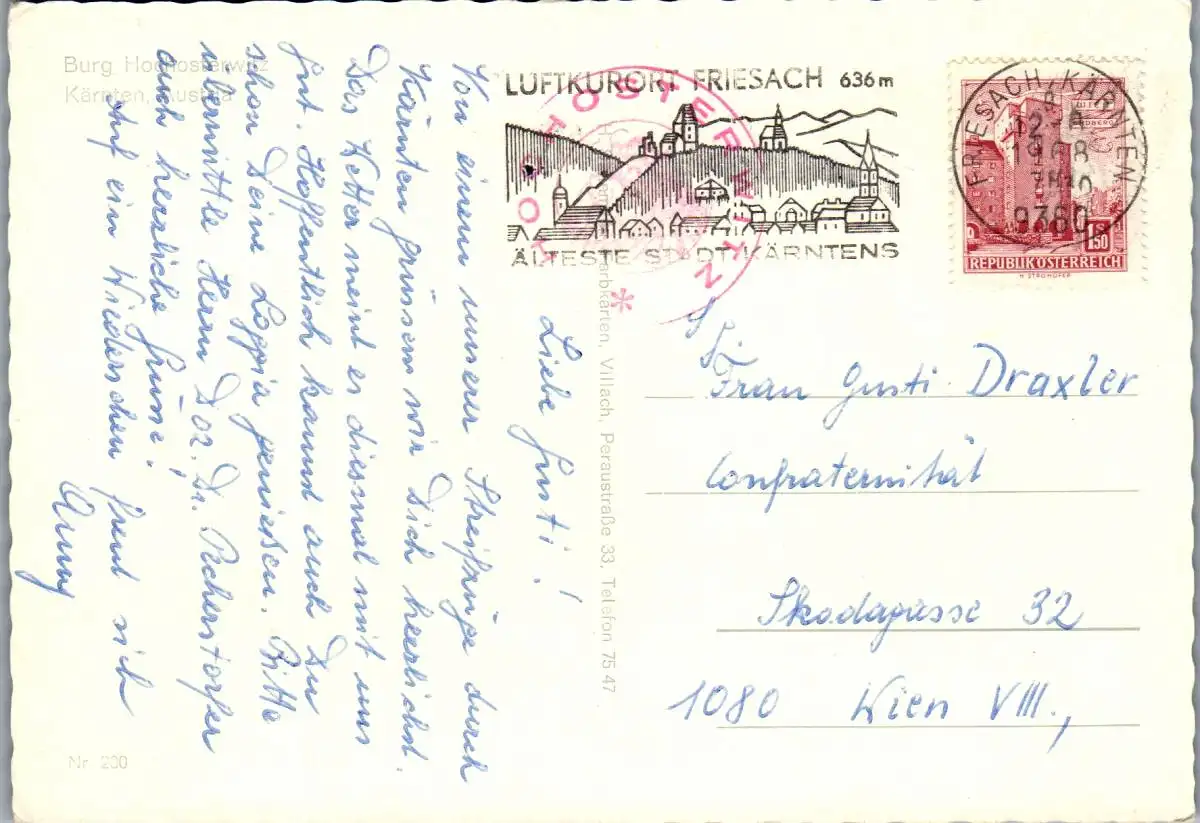 Burg Hochosterwitz
Kärnten, Austria
LUFTKURORT FRIESACH 636 m
ÄLTESTE STADT KÄRNTENS
HOCHOSTERWITZ
FRIESACH, KÄRNTEN
9360
1.50
REPUBLIK ÖSTERREICH
H. STROHOFER
Liebe Gusti!
Von einem unserer Streifzüge durch
Kärnten grüssen wir Dich herzlichst.
Das Wetter meint es diesmal mit uns
gut. Hoffentlich kannst auch Du
schon Deine Loggia geniessen. Bitte
übermittle Herrn Doz. Dr. Pecherstorfer
auch herzliche Grüsse!
Auf ein Wiedersehen freut sich
Anny
Farbkarten, Villach, Peraustraße 33, Telefon 75 47
Frau Gusti Draxler
Confraternität
Skodagasse 32
1080 Wien VIII.,
Nr. 200